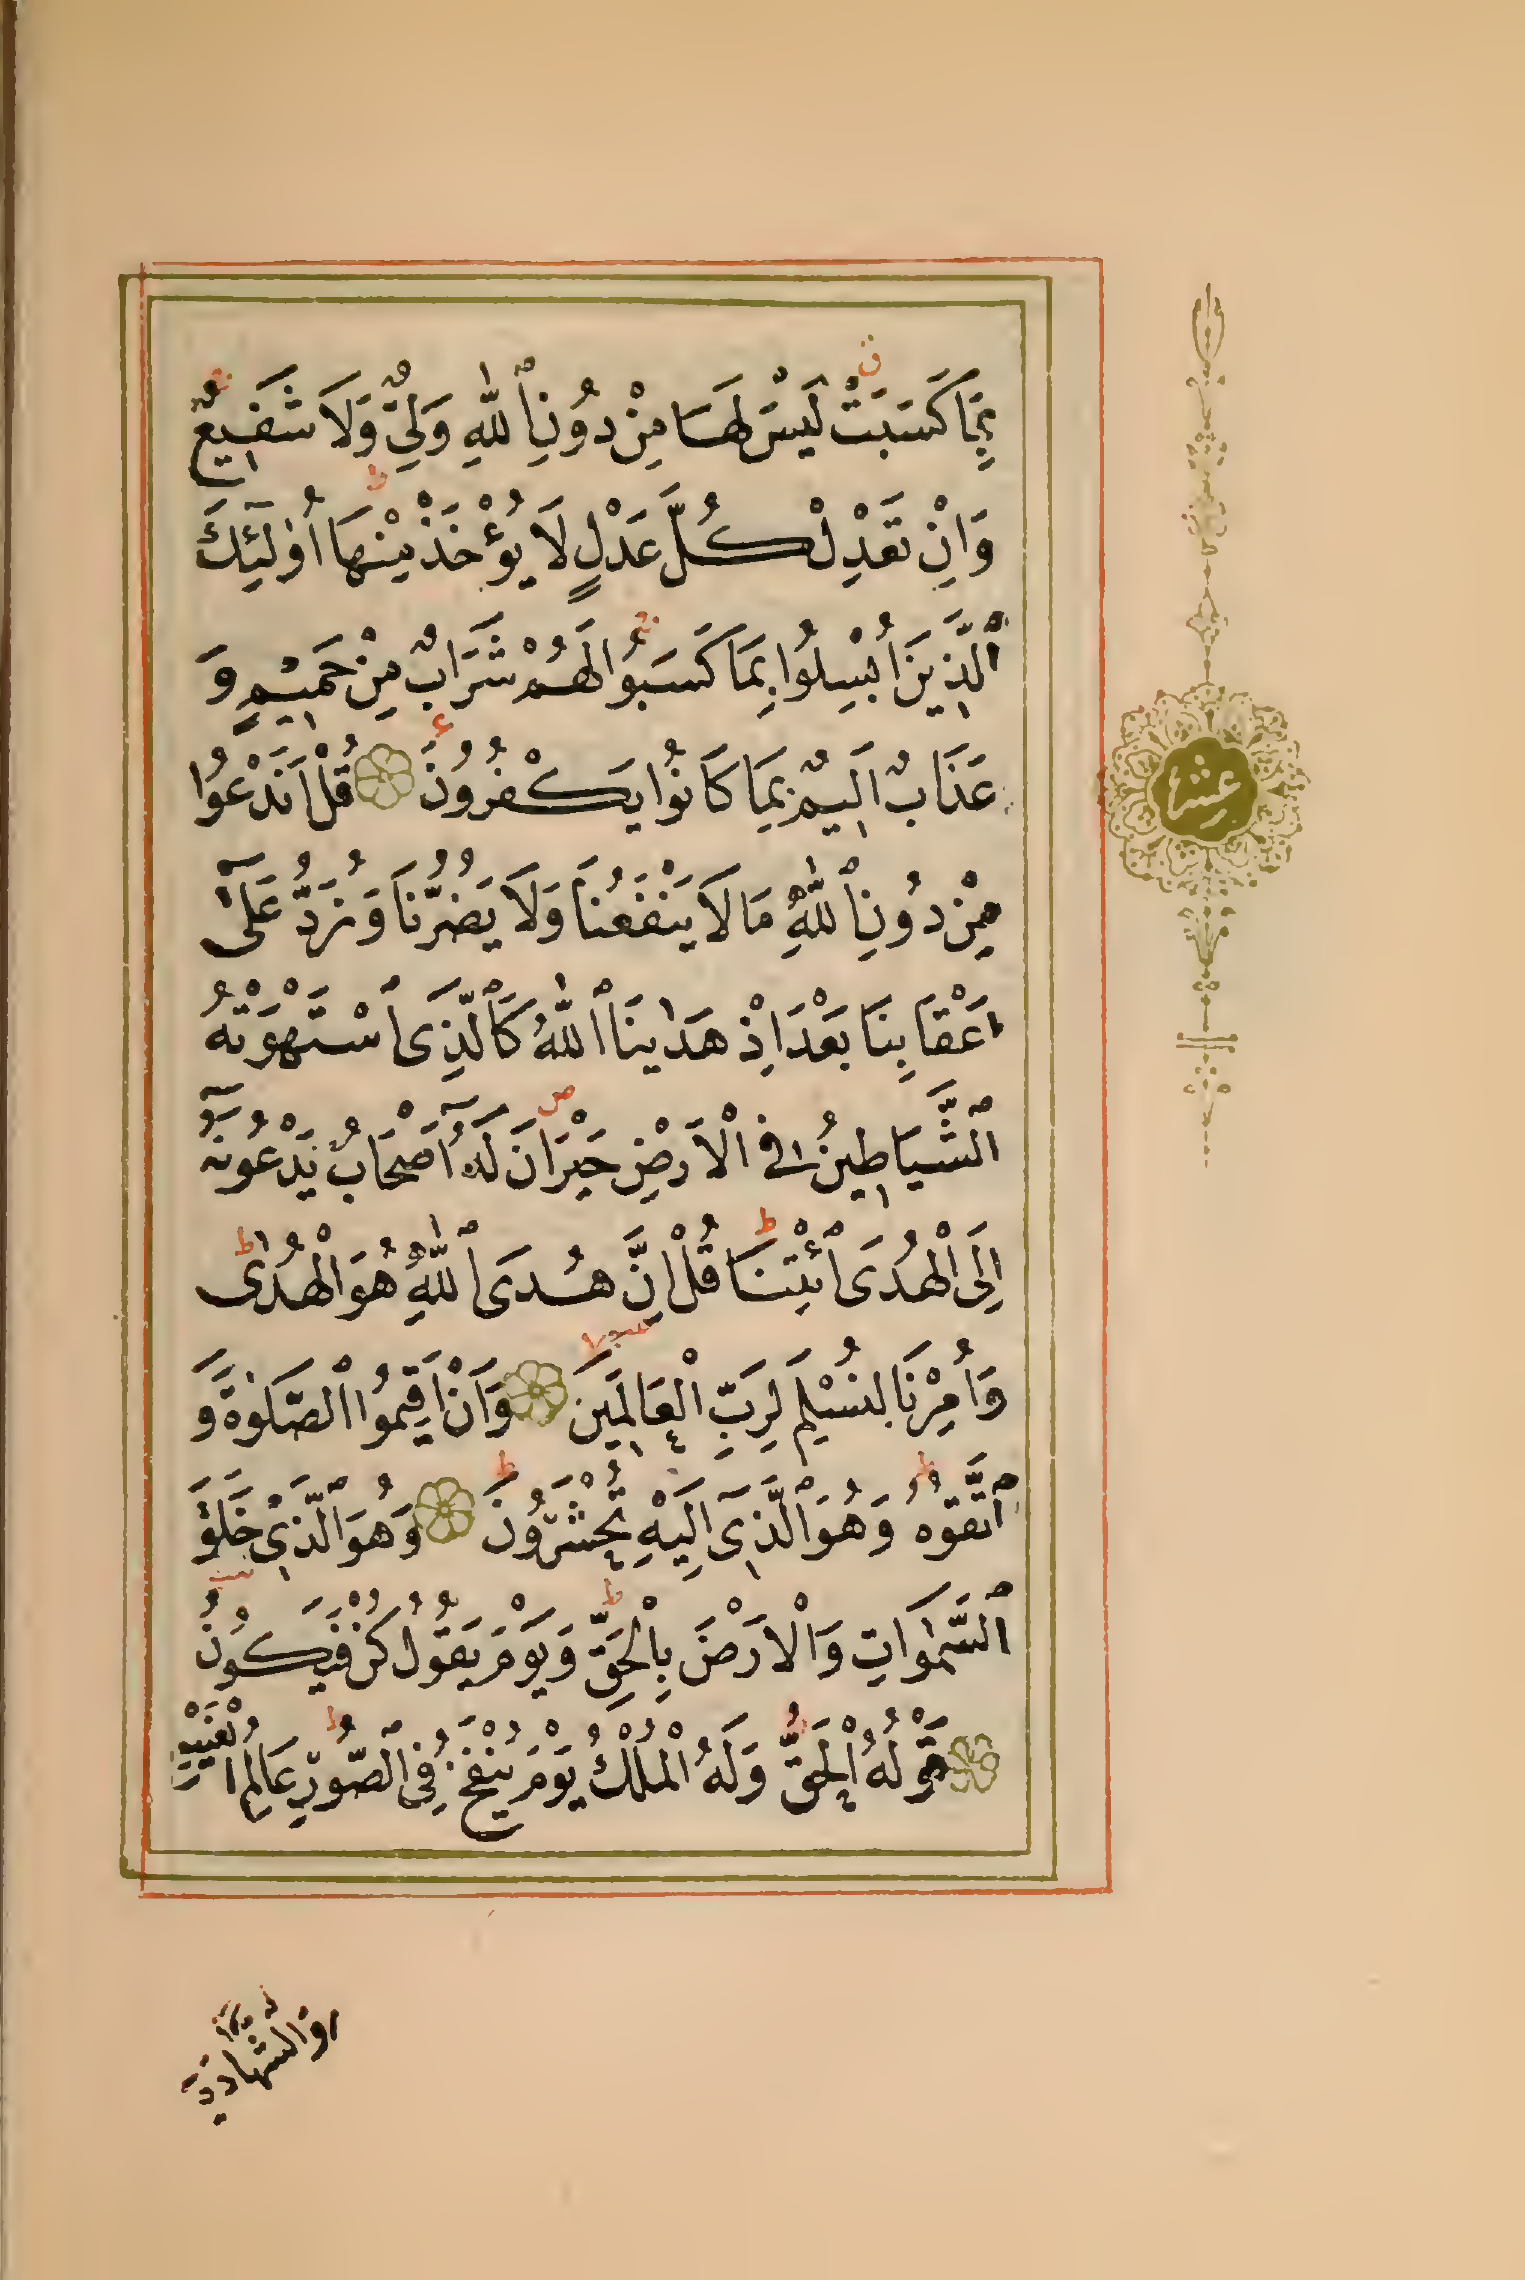 بِمَا كَسَبَتْ لَيْسَ لَهَا مِنْ دُونِ ٱللّٰهِ وَلِىٌّ وَلَا شَفِيعٌ
وَاِنْ تَعْدِلْ كُلَّ عَدْلٍ لَا يُؤْخَذْ مِنْهَا اُو۬لٰٓئِكَ
ٱلَّذِينَ اُبْسِلُوا بِمَا كَسَبُوا لَهُمْ شَرَابٌ مِنْ حَمِيمٍ وَ
عَذَابٌ اَلِيمٌ بِمَا كَانُوا يَكْفُرُونَ قُلْ اَنَدْعُوا
مِنْ دُونِ ٱللّٰهِ مَا لَا يَنْفَعُنَا وَلَا يَضُرُّنَا وَنُرَدُّ عَلٰٓى
اَعْقَابِنَا بَعْدَ اِذْ هَدٰينَا ٱللّٰهُ كَٱلَّذِى ٱسْتَهْوَتْهُ
ٱلشَّيَاطِينُ فِى ٱلْاَرْضِ حَيْرَانَ لَهُٓ اَصْحَابٌ يَدْعُونَهُٓ
اِلَى ٱلْهُدَى ٱئْتِنَا قُلْ اِنَّ هُدَى ٱللّٰهِ هُوَ ٱلْهُدٰى
وَاُمِرْنَا لِنُسْلِمَ لِرَبِّ ٱلْعَالَمِينَ وَاَنْ اَقِيمُوا ٱلصَّلٰوةَ وَ
ٱتَّقُوهُ وَهُوَ ٱلَّذِىٓ اِلَيْهِ تُحْشَرُونَ وَهُوَ ٱلَّذِى خَلَقَ
ٱلسَّمٰوَاتِ وَٱلْاَرْضَ بِٱلْحَقِّ وَيَوْمَ يَقُولُ كُنْ فَيَكُونُ
قَوْلُهُ ٱلْحَقُّ وَلَهُ ٱلْمُلْكُ يَوْمَ يُنْفَخُ فِى ٱلصُّورِ عَالِمُ ٱلْغَيْبِ
عشر
وَالشَّهَادَةِ